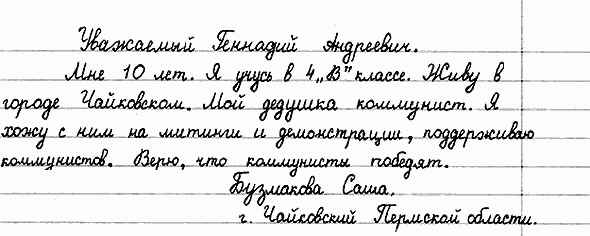 Уважаемый Геннадий Андреевич.
Мне 10 лет. Я учусь в 4 „В" классе. Живу в
городе Чайковском. Мой дедушка коммунист. Я
хожу с ним на митинги и демонстрации, поддерживаю
коммунистов. Верю, что коммунисты победят.
Бузмакова Саша.
г. Чайковский Пермской области.